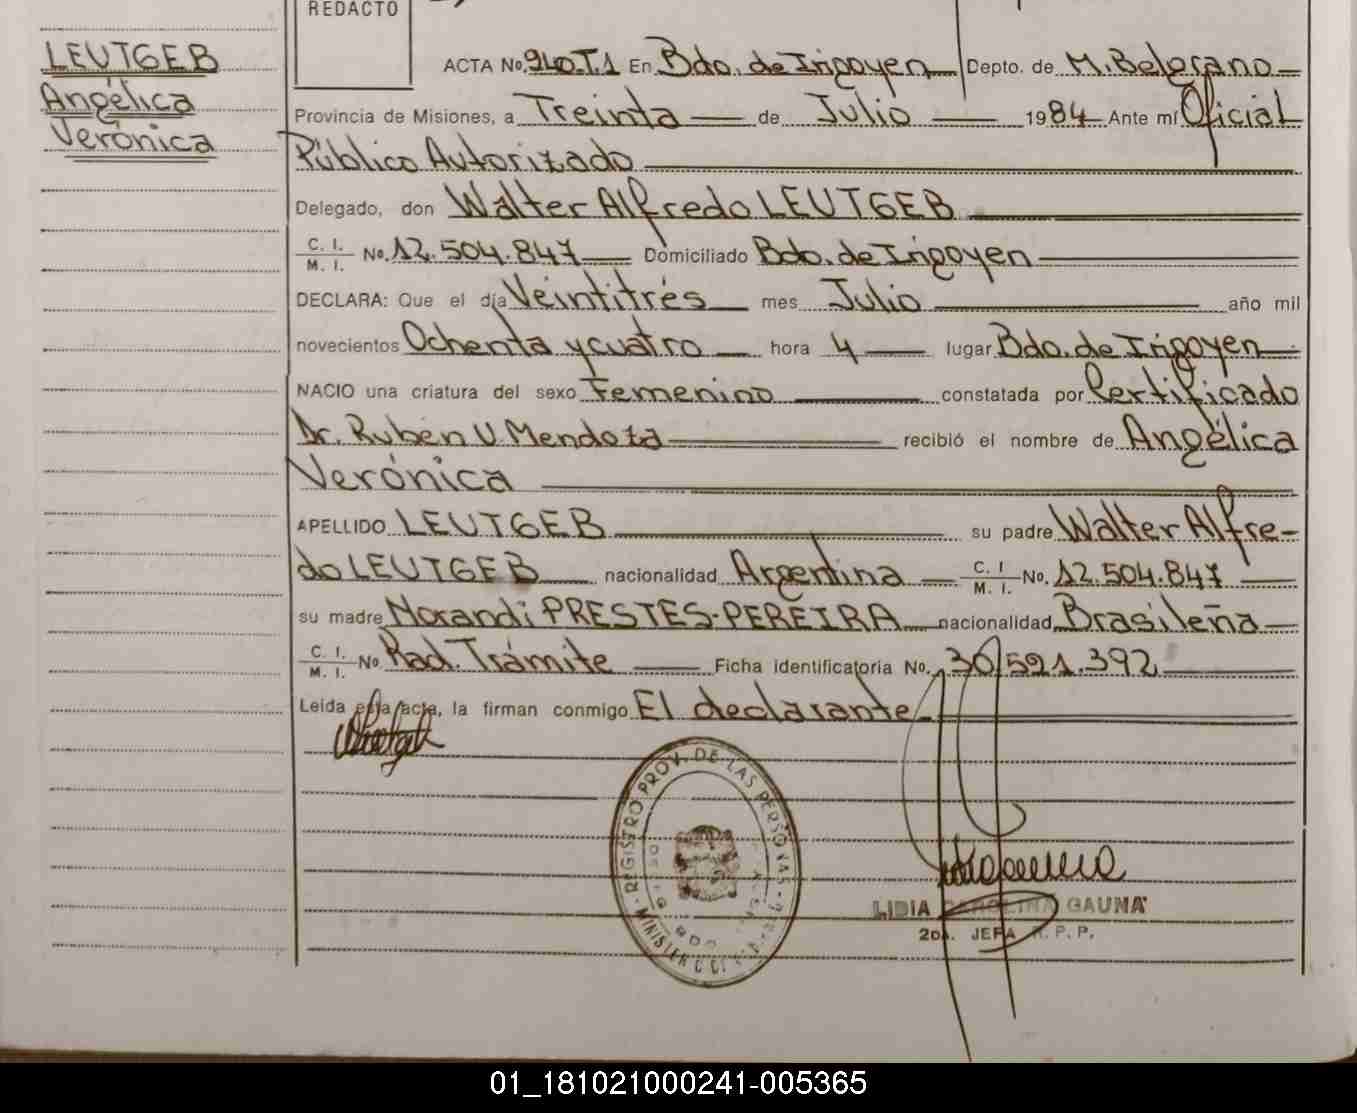 REDACTO
LEUTGEB
Angélica
Verónica
ACTA No. 940.T.1 En Bdo. de Irigoyen Depto. de M. Belgrano
Provincia de Misiones, a Treinta de Julio 1984 Ante mí Oficial
Público Autorizado
Delegado, don Walter Alfredo LEUTGEB
C. I.
M. I. No. 12.504.847 Domiciliado Bdo. de Irigoyen
DECLARA: Que el día Veintitrés mes Julio año mil
novecientos Ochenta y cuatro hora 4 lugar Bdo. de Irigoyen
NACIO una criatura del sexo Femenino constatada por Certificado
Dr. Rubén U. Mendoza recibió el nombre de Angélica
Verónica
APELLIDO LEUTGEB su padre Walter Alfre-
do LEUTGEB nacionalidad Argentina C. I
M. I. No. 12.504.847
su madre Norandi PRESTES-PEREIRA nacionalidad Brasileña
C. I.
M. I. No Rad. Trámite Ficha identificatoria No. 30.521.392
Leída esta acta, la firman conmigo El declarante
REGISTRO PROV. DE LAS PERSONAS
LIDIA CAROLINA GAUNA
2da. JEFA R. P. P.
01_181021000241-005365